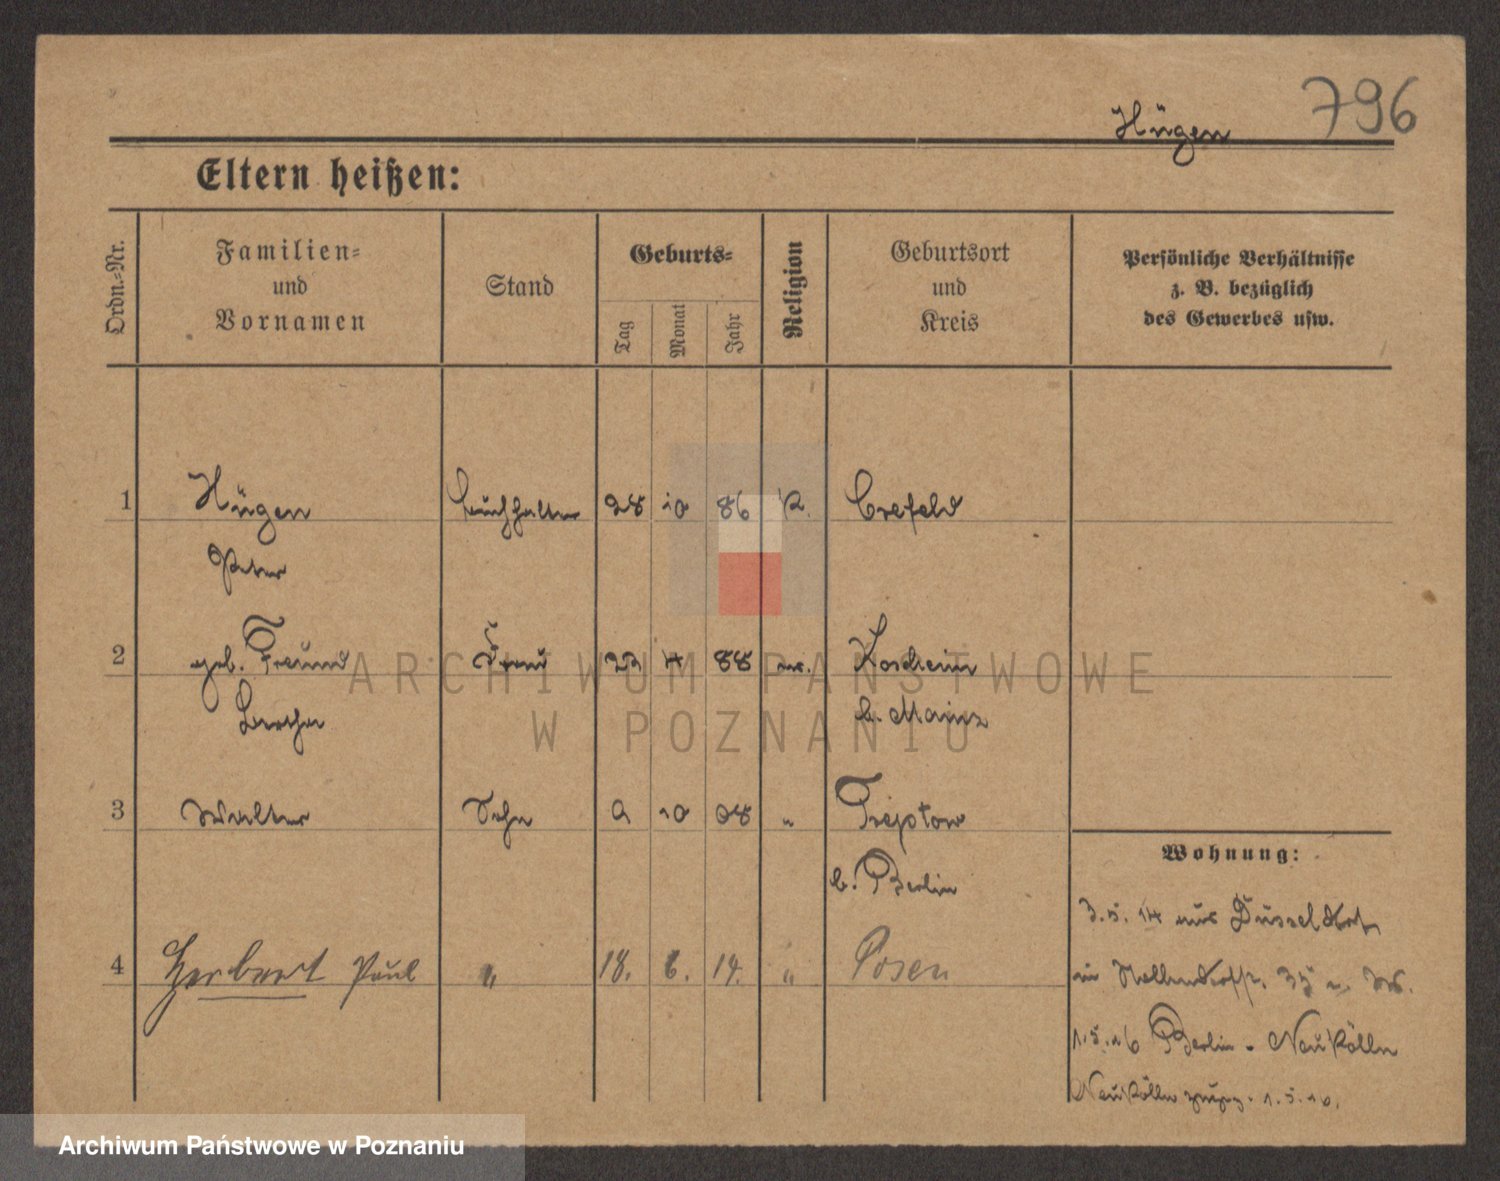 796
Hügen
Eltern heißen:
Ordn.-Nr.
Familien-
und
Vornamen
Stand
Geburts-
Tag
Monat
Jahr
Religion
Geburtsort
und
Kreis
Persönliche Verhältnisse
z. B. bezüglich
des Gewerbes usw.
1 Hügen Buchhalter 28 10 86 K. Crefeld
Peter
2 geb. Freund Frau 23 4 88 Kostheim
Bertha b. Mainz
3 Walter Sohn 9 10 08 " Treptow
b. Berlin
4 Herbert Paul " 18. 6. 14. " Posen
Wohnung:
3.5.14 aus Düsseldorf
in 35
1.5.16 Berlin - Neukölln
Neukölln 1.5.16.
ARCHIWUM PAŃSTWOWE
W POZNANIU
Archiwum Państwowe w Poznaniu